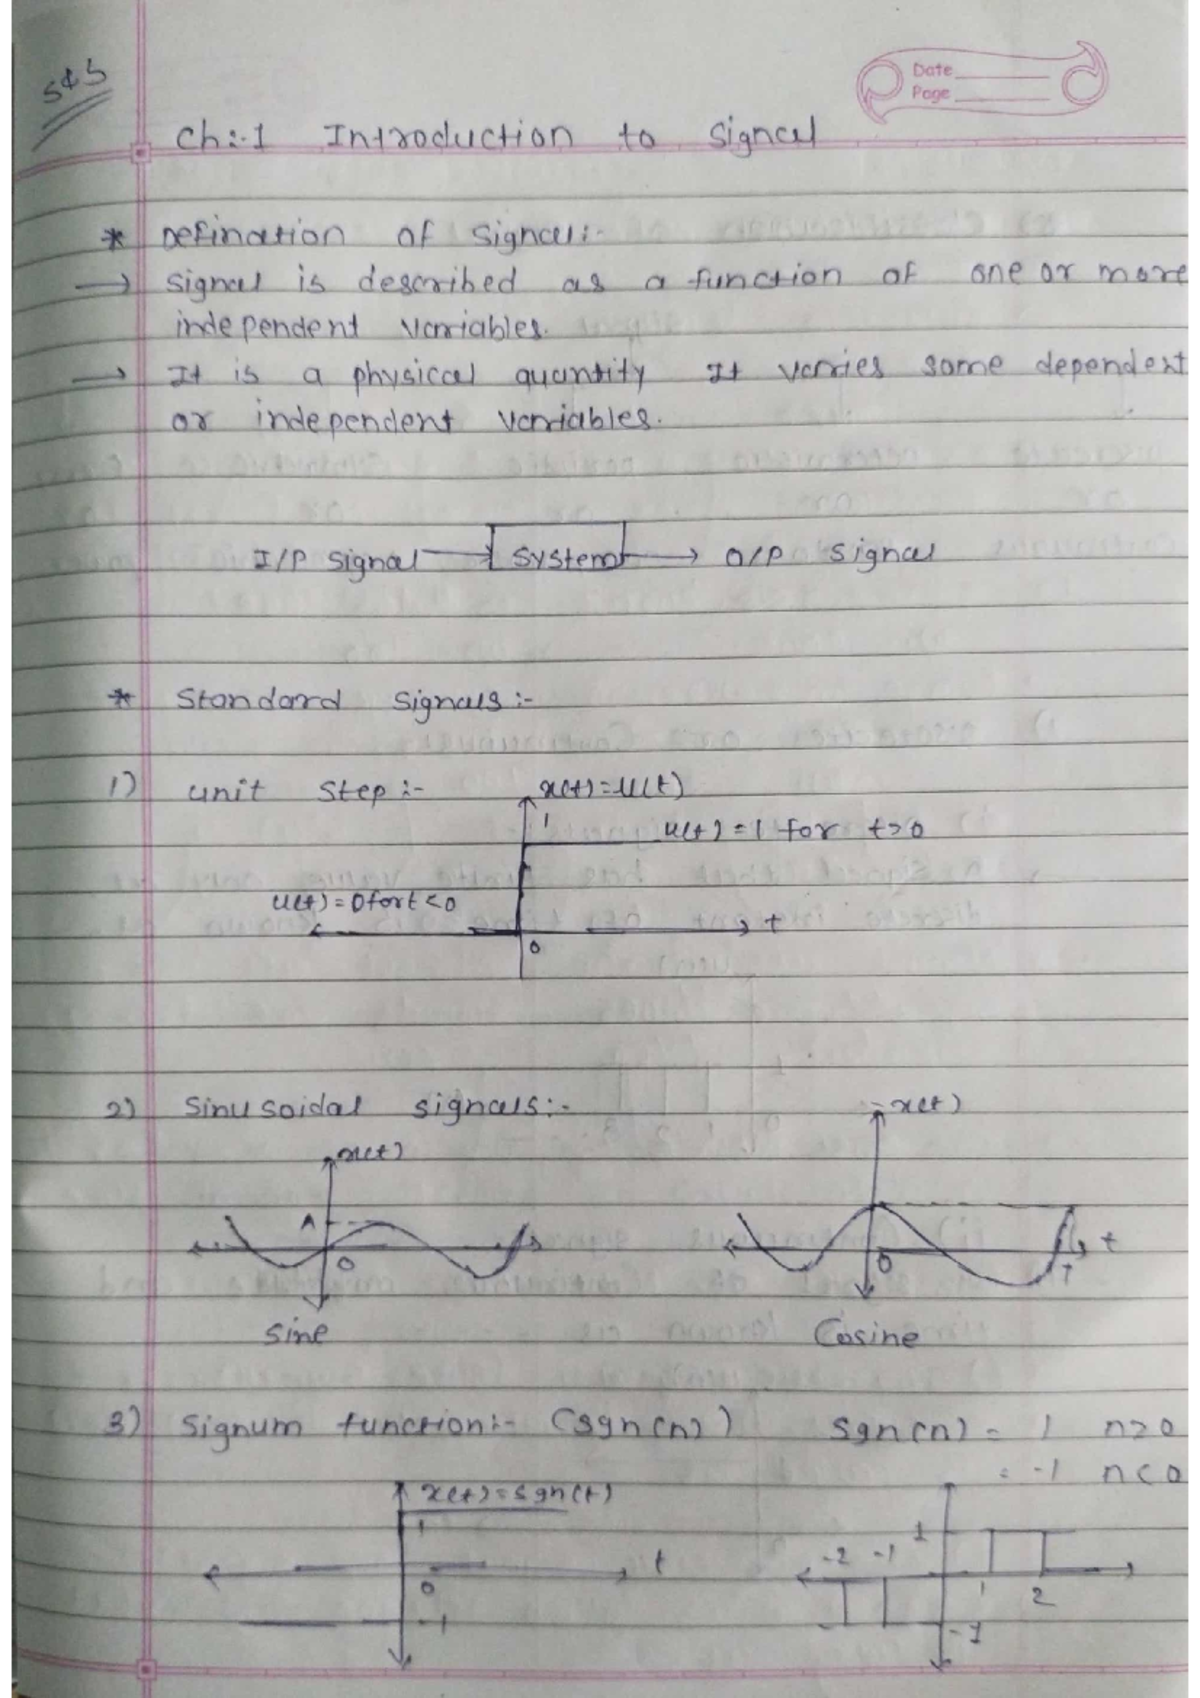 S&S
Date
Page
Ch:-1 Introduction to Signal
* Defination of Signal:-
→ Signal is described as a function of one or more
independent variables.
→ It is a physical quantity It varies some dependent
or independent variables.
I/P Signal → System → O/P Signal
* Standard Signals:-
1) unit Step :-
x(t)=u(t)
1
u(t) = 1 for t>0
u(t) = 0 for t<0
t
0
2) Sinusoidal signals:-
x(t)
x(t)
A
0
0
t
T
Sine
Cosine
3) Signum function:- (sgn(n)) Sgn(n) = 1 n>0
= -1 n<0
x(t)=sgn(t)
1
t
0
-1
1
-2 -1
1 2
-1